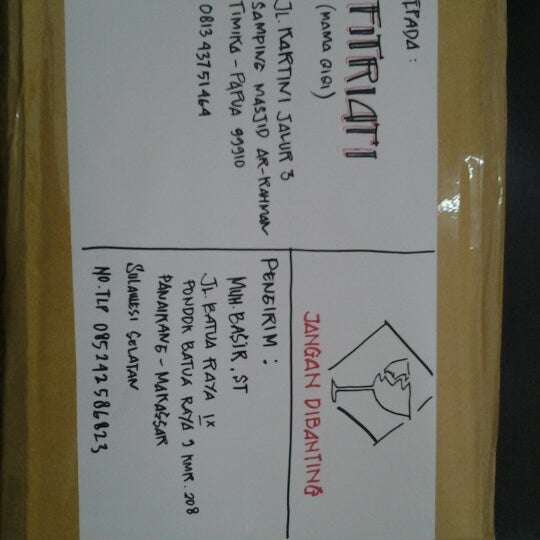 EPADA :
FITRIATI
(MAMA QIQI)
JL. KARTINI JALUR 3
SAMPING MASJID AR-RAHMAN
TIMIKA - PAPUA 99910
0813 43751464
JANGAN DIBANTING
PENGIRIM :
MUH. BASIR, ST
JL. BATUA RAYA IX
PONDOK BATUA RAYA 9 KMR. 208
PANAIKANG - MAKASSAR
SULAWESI SELATAN
NO. TLP 085242586823